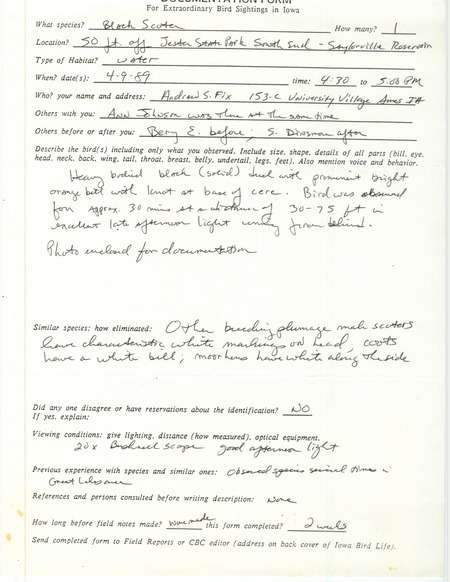 DOCUMENTATION FORM
For Extraordinary Bird Sightings in Iowa
What species? Black Scoter How many? 1
Location? 50 ft. off Jester State Park South End - Saylorville Reservoir
Type of Habitat? water
When? date(s): 4-9-89 time: 4:30 to 5:00 PM
Who? your name and address: Andrew S. Fix 153-C University Village Ames IA
Others with you: Ann Johnson was there at the same time
Others before or after you: Bery E. before; S. Dinsmore after
Describe the bird(s) including only what you observed. Include size, shape, details of all parts (bill, eye,
head, neck, back, wing, tail, throat, breast, belly, undertail, legs, feet). Also mention voice and behavior.
Heavy bodied black (solid) duck with prominent bright
orange bill with knot at base of cere. Bird was observed
for approx. 30 mins at a distance of 30-75 ft in
excellent late afternoon light coming from behind.
Photo enclosed for documentation
Similar species; how eliminated: Other breeding plumage male scoters
have characteristic white markings on head, coots
have a white bill; moorhens have white along the side
Did any one disagree or have reservations about the identification? NO
If yes, explain:
Viewing conditions: give lighting, distance (how measured), optical equipment.
20x Bushnell scope good afternoon light
Previous experience with species and similar ones: Observed species several times in
Great Lakes area
References and persons consulted before writing description: none
How long before field notes made? none made this form completed? 2 weeks
Send completed form to Field Reports or CBC editor (address on back cover of Iowa Bird Life).